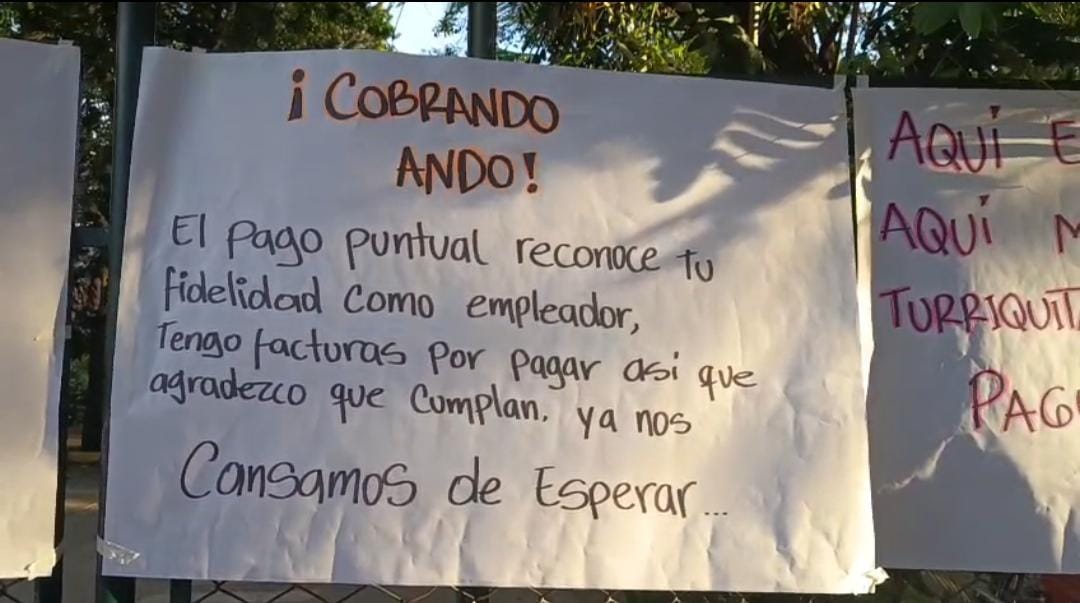 ¡COBRANDO
ANDO!
El pago puntual reconoce tu
fidelidad como empleador,
Tengo facturas por pagar asi que
agradezco que Cumplan. ya nos
Cansamos de Esperar...
AQUÍ E
AQUÍ M
TURRIQUIT
PAG